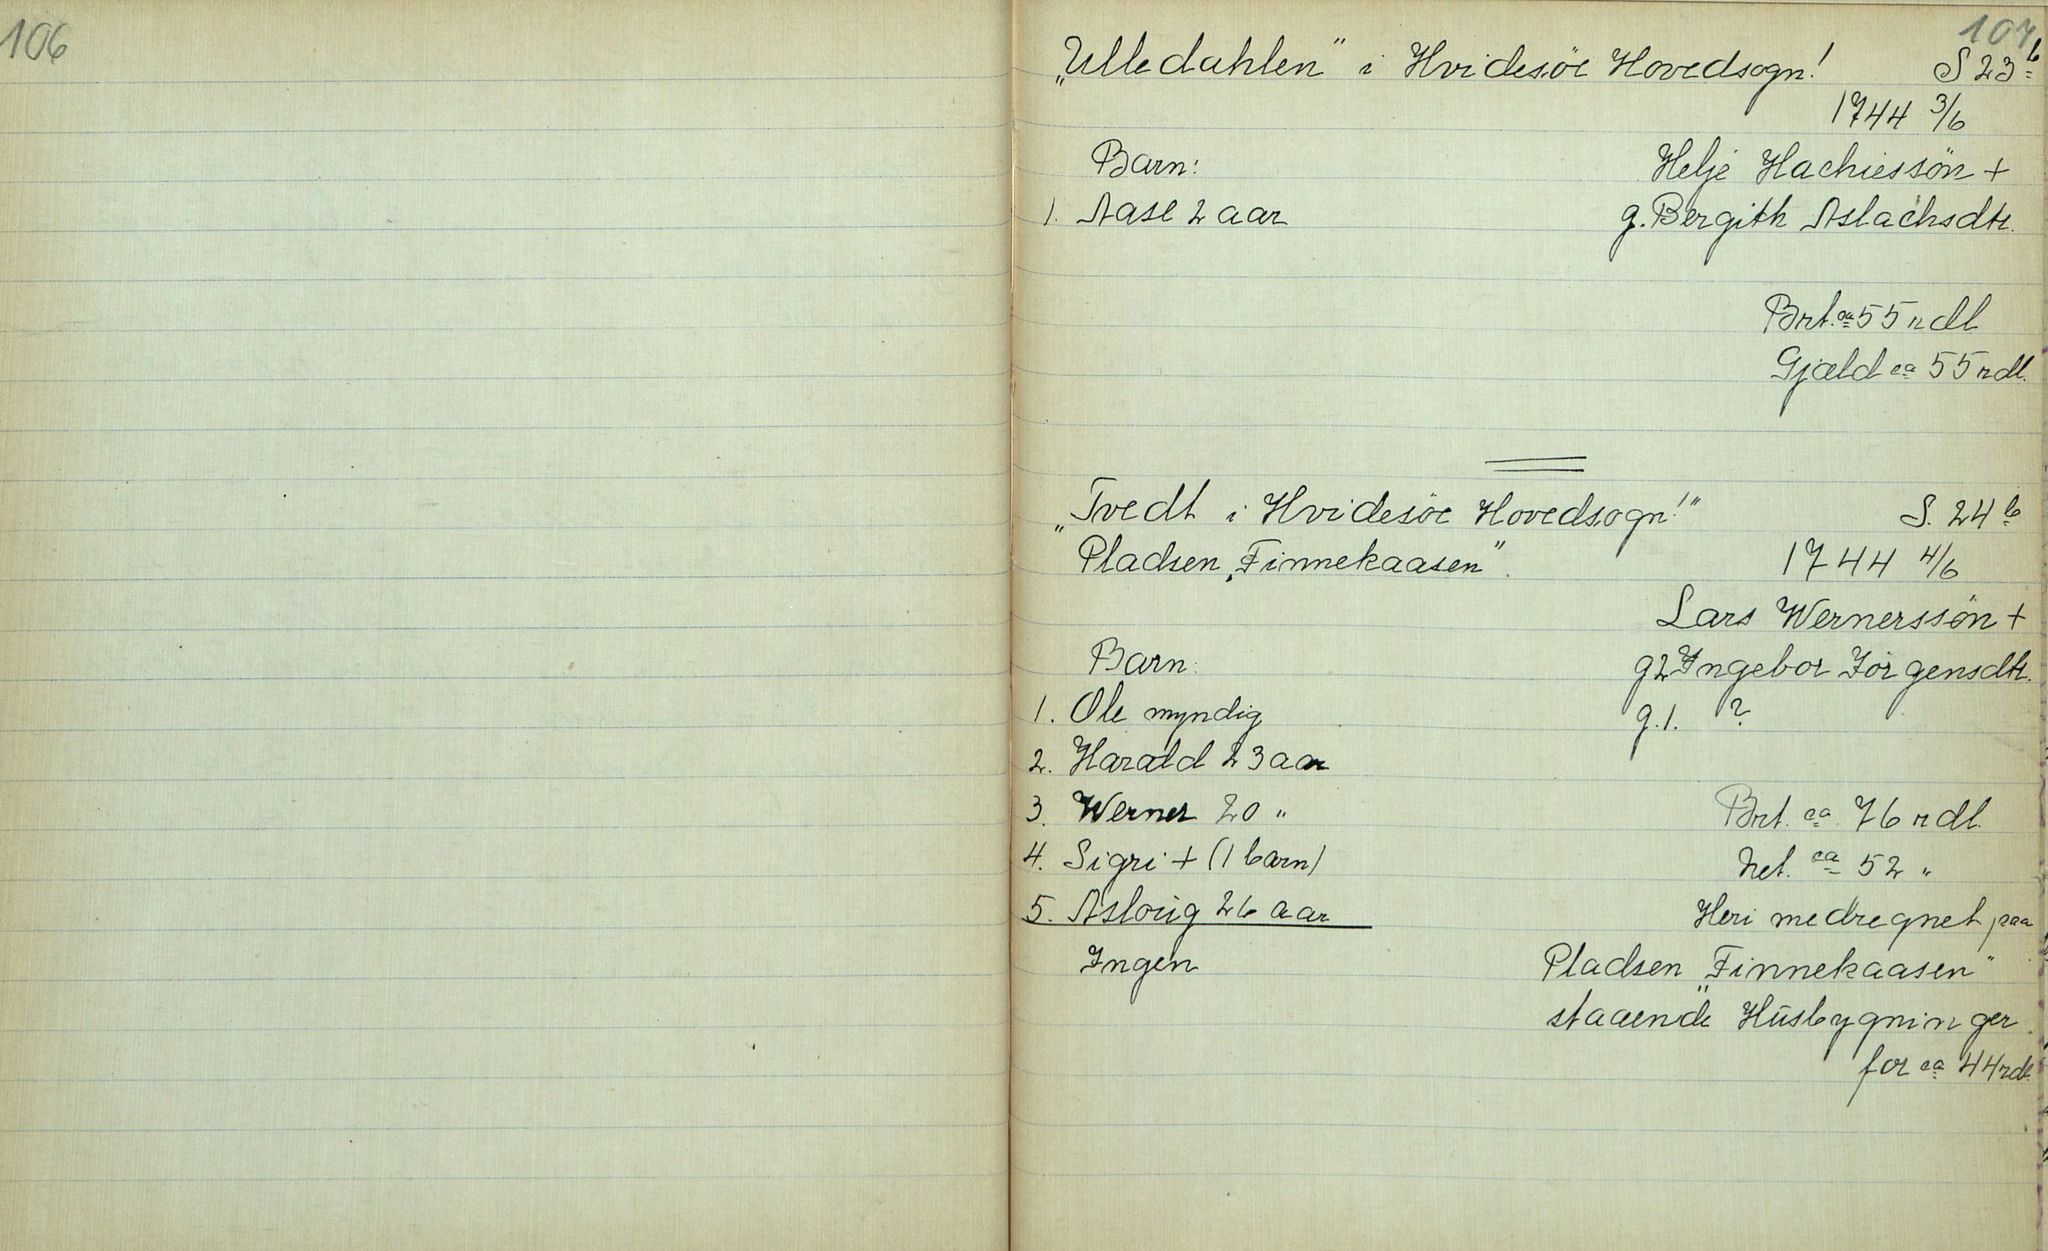 106
107
„Ulledahlen" i Hvidesöe Hovedsogn! S 23b
1744 3/6
Barn: Helje Hachiessön +
1. Aase 2 aar g. Bergith Aslachsdtr.
Brt. ca 55 rdl
Gjæld ca 55 rdl.
„Tvedt i Hvidesöe Hovedsogn!" S. 24b
Pladsen „Finnekaasen". 1744 4/6
Lars Wernerssön +
Barn: g2 Ingebor Jörgensdtr.
1. Ole myndig g.1. ?
2. Harald 23 aar
3. Werner 20 " Brt. ca 76 rdl.
4. Sigri + (1 barn) Net. ca 52 "
5. Asloug 26 aar Heri medregnet paa
Ingen Pladsen „Finnekaasen"
staaende Husbygninger
for ca 44 rdl.